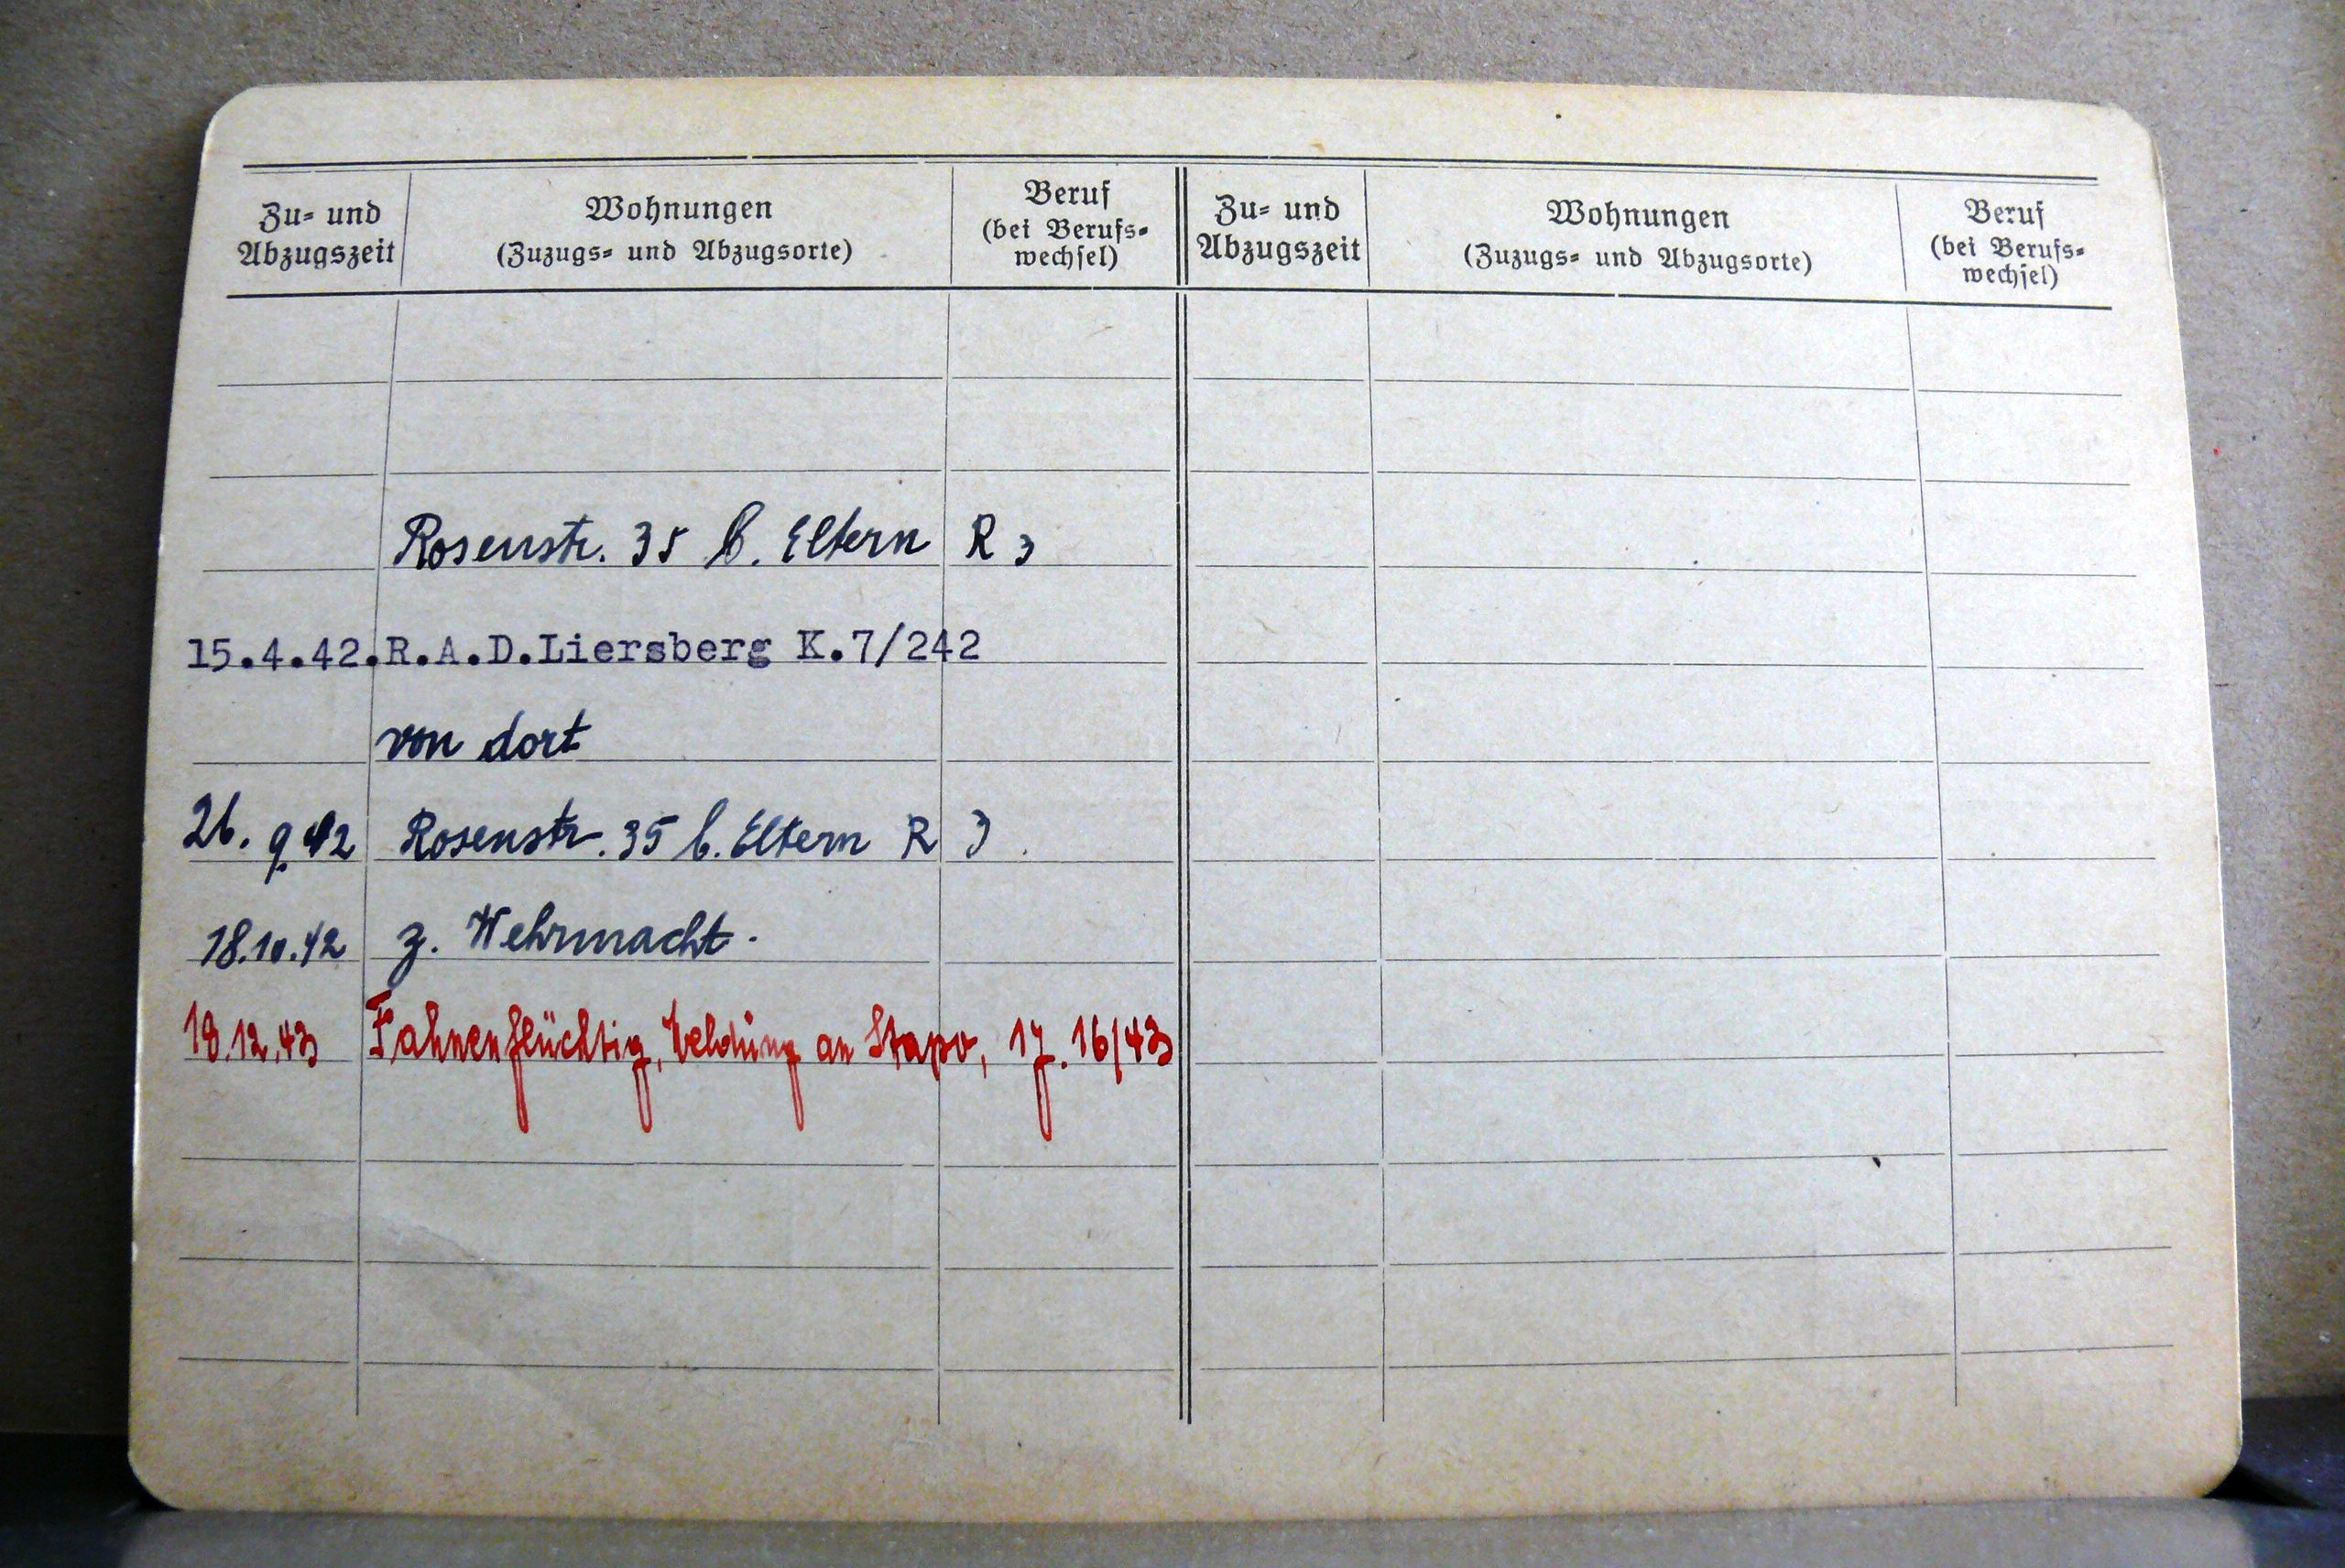 Zu- und Abzugszeit
Wohnungen
(Zuzugs- und Abzugsorte)
Beruf
(bei Berufs-
wechsel)
Zu- und Abzugszeit
Wohnungen
(Zuzugs- und Abzugsorte)
Beruf
(bei Berufs-
wechsel)
Rosenstr. 35 b. Eltern R 3
15.4.42.R.A.D.Liersberg K.7/242
von dort
26. 9 42 Rosenstr. 35 b. Eltern R 3
18.10.42 z. Wehrmacht.
18.12.43 Fahnenflüchtig, Meldung an Stapo, 16/43